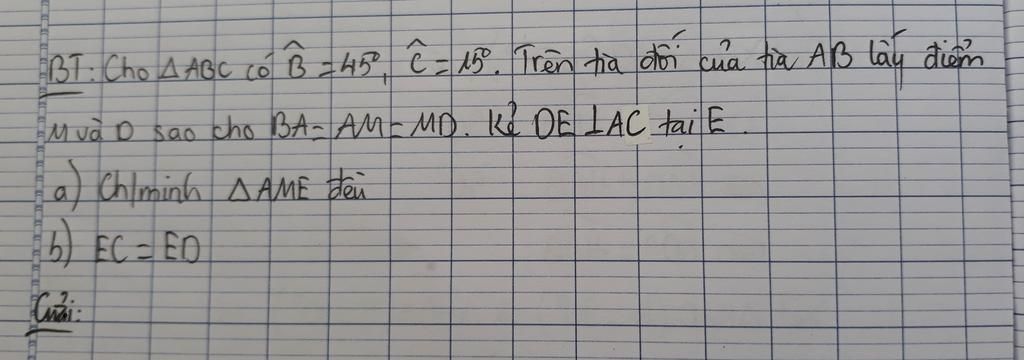 BT: Cho △ABC có B̂ = 45°, Ĉ = 15°. Trên tia đối của tia AB lấy điểm
M và D sao cho BA = AM = MD. Kẻ DE ⊥ AC tại E.
a) Ch/minh △AME đều
b) EC = ED
Giải: